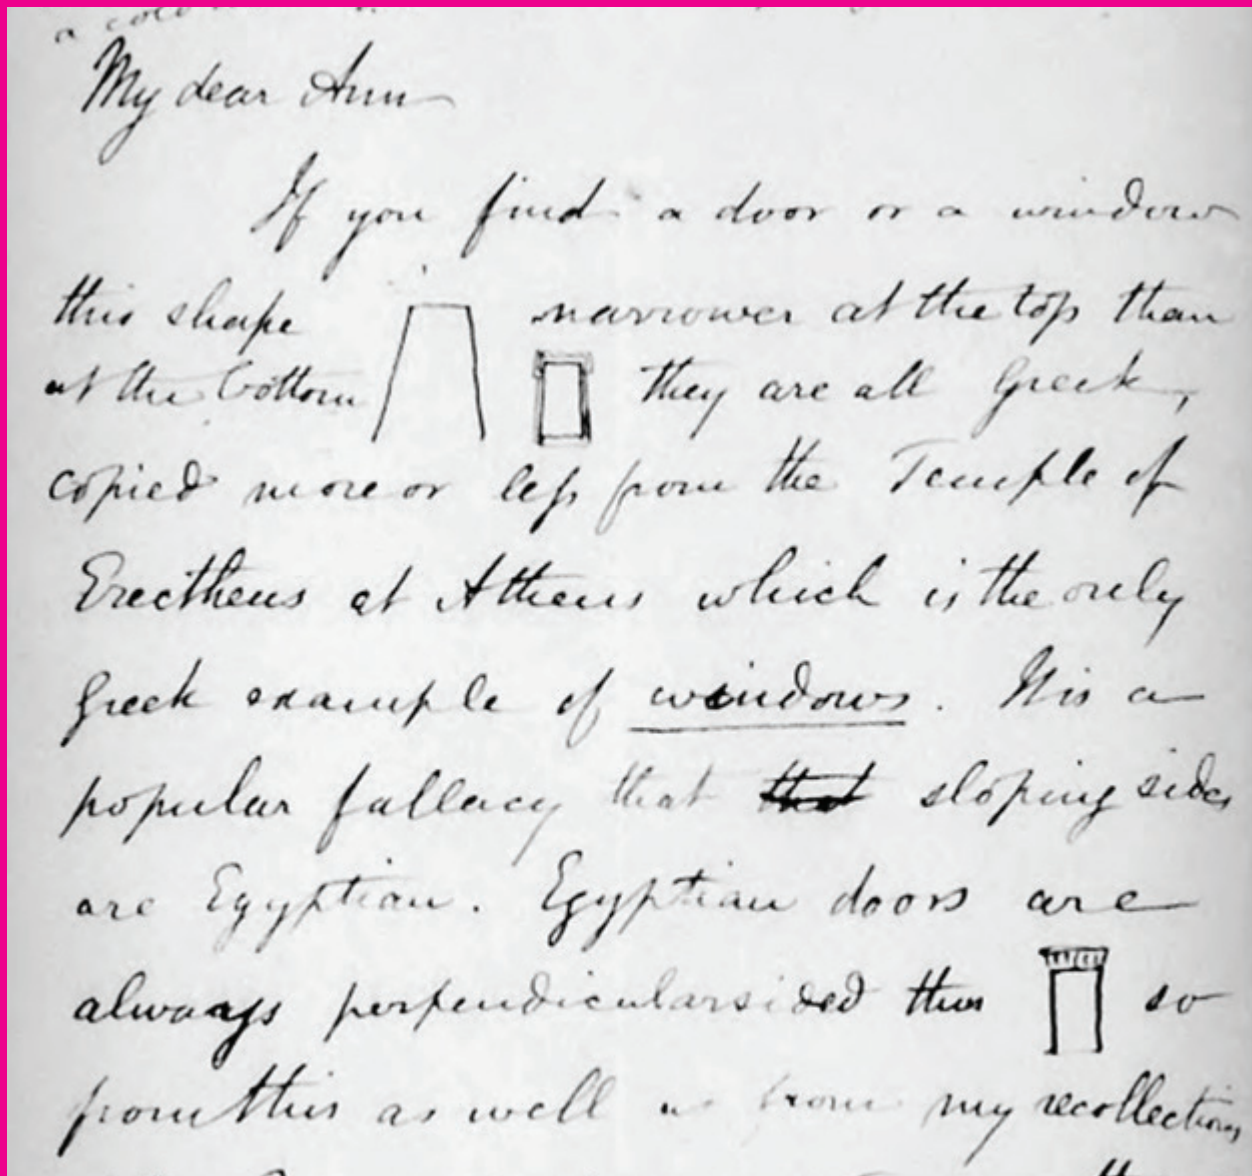 My dear Ann
If you find a door or a window
this shape narrower at the top than
at the bottom they are all Greek,
copied more or less from the Temple of
Erectheus at Athens which is the only
Greek example of windows. It is a
popular fallacy that that sloping sides
are Egyptian. Egyptian doors are
always perpendicularsided thus so
from this as well as from my recollections